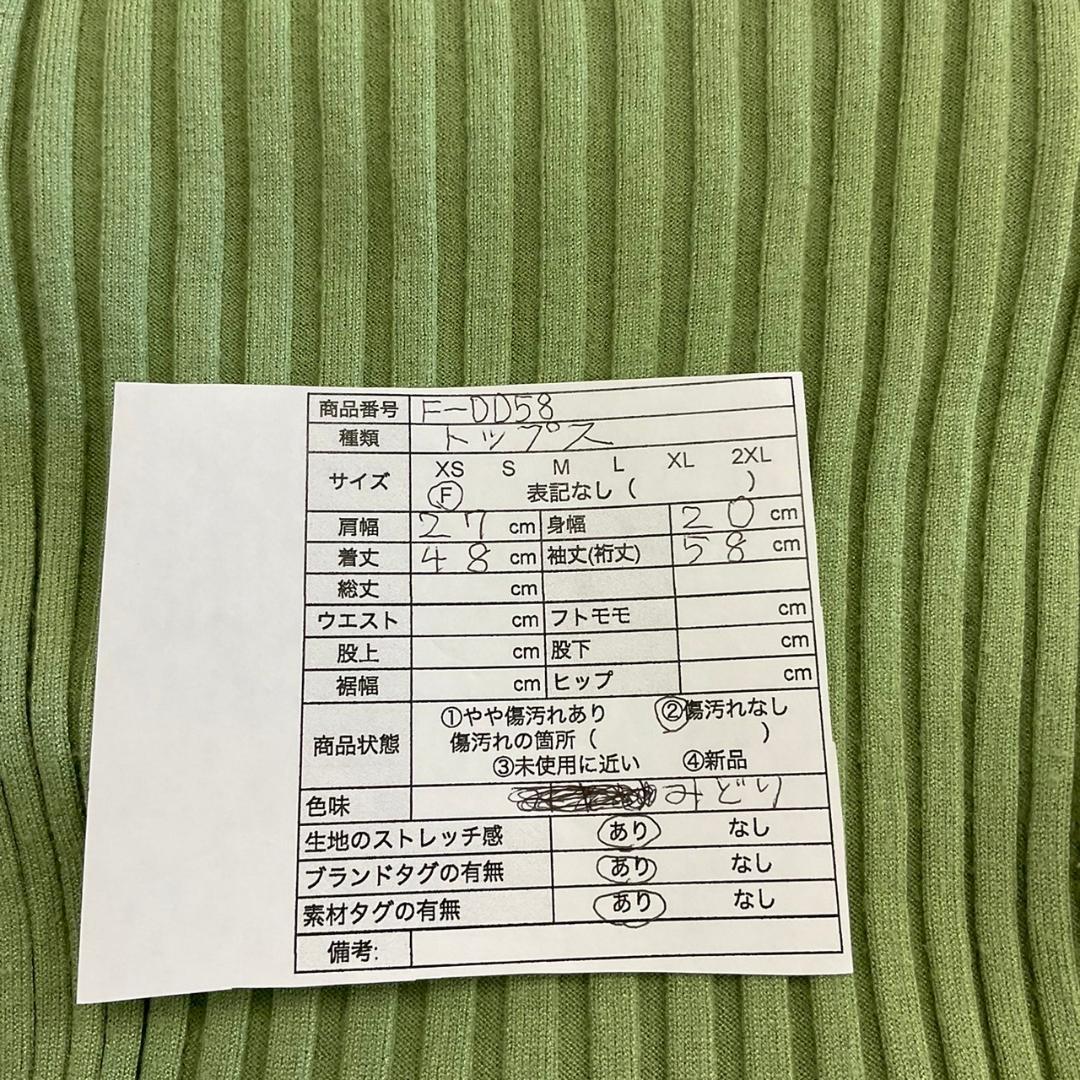 商品番号 F-DD58
種類 トップス
サイズ XS S M L XL 2XL
F 表記なし ( )
肩幅 27 cm 身幅 20 cm
着丈 48 cm 袖丈(裄丈) 58 cm
総丈 cm
ウエスト cm フトモモ cm
股上 cm 股下 cm
裾幅 cm ヒップ cm
商品状態 ①やや傷汚れあり ②傷汚れなし
傷汚れの箇所 ( )
③未使用に近い ④新品
色味 みどり
生地のストレッチ感 あり なし
ブランドタグの有無 あり なし
素材タグの有無 あり なし
備考: